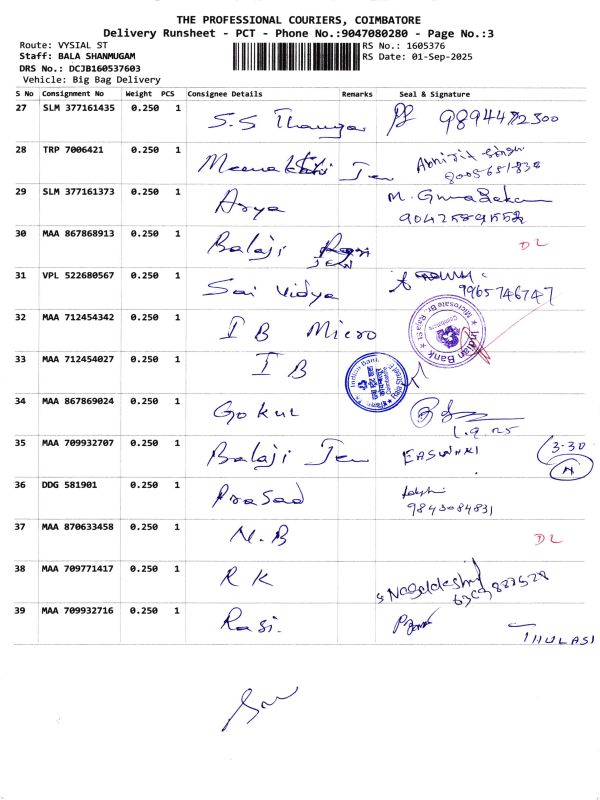 THE PROFESSIONAL COURIERS, COIMBATORE
Delivery Runsheet - PCT - Phone No.:9047080280 - Page No.:3
Route: VYSIAL ST
Staff: BALA SHANMUGAM
DRS No.: DCJB160537603
Vehicle: Big Bag Delivery
RS No.: 1605376
RS Date: 01-Sep-2025
S No Consignment No Weight PCS Consignee Details Remarks Seal & Signature
27 SLM 377161435 0.250 1 S.S Thangar
28 TRP 7006421 0.250 1 Meenakshi Jew Abhijit Singh
29 SLM 377161373 0.250 1 Arya
30 MAA 867868913 0.250 1 Balaji DL
JEW
31 VPL 522680567 0.250 1 Sai Vidya 9965746747
32 MAA 712454342 0.250 1 I B Micro Indian Bank
33 MAA 712454027 0.250 1 I B Indian Bank
34 MAA 867869024 0.250 1 Gokul
1.9.25
35 MAA 709932707 0.250 1 Balaji Jew EASWARI 3-30
A
36 DDG 581901 0.250 1 Prasad
9843084831
37 MAA 870633458 0.250 1 N.B DL
38 MAA 709771417 0.250 1 R K
39 MAA 709932716 0.250 1 Rasi. THULASI